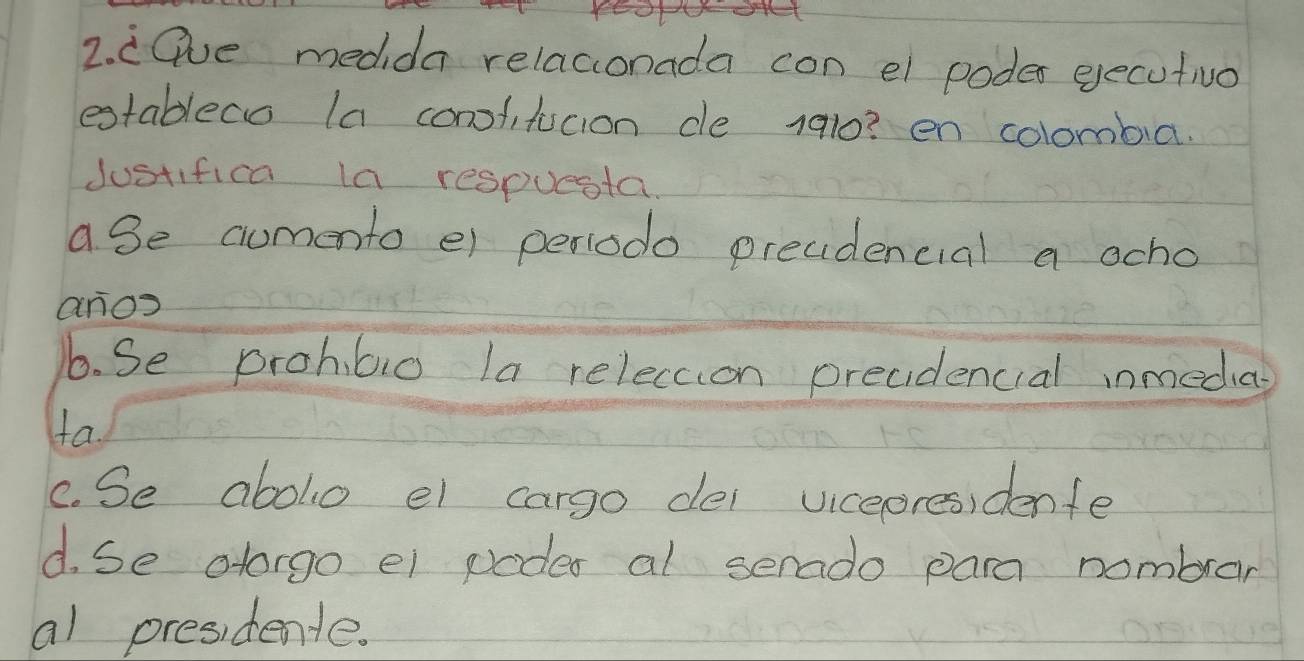 2.¿Que medida relacionada con el poder ejecutivo
establecio la constitucion de 1910? en colombia.
Justifica la respuesta.
a. Se aumento el periodo precidencial a ocho
años
b. Se prohibio la releccion precidencial inmedia-
ta.
c. Se abolio el cargo del vicepresidente
d. Se otorgo el poder al senado para nombrar
al presidente.